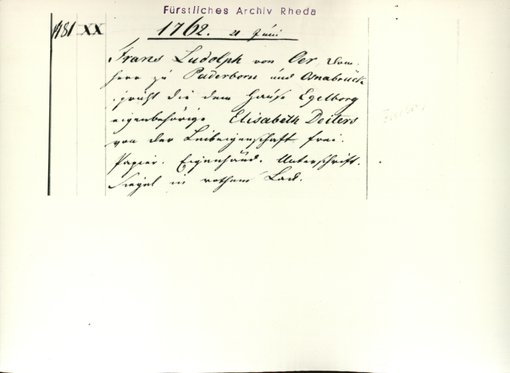 Fürstliches Archiv Rheda
1981 XX 1762. 21 Juni
Franz Ludolph von Oer Dom-
herr zu Paderborn und Osnabrück
spricht die dem Hause Egelborg
eigenbehörige Elisabeth Deiters
von der Leibeigenschaft frei.
Papier. Eigenhänd. Unterschrift.
Siegel in rothem Lack.